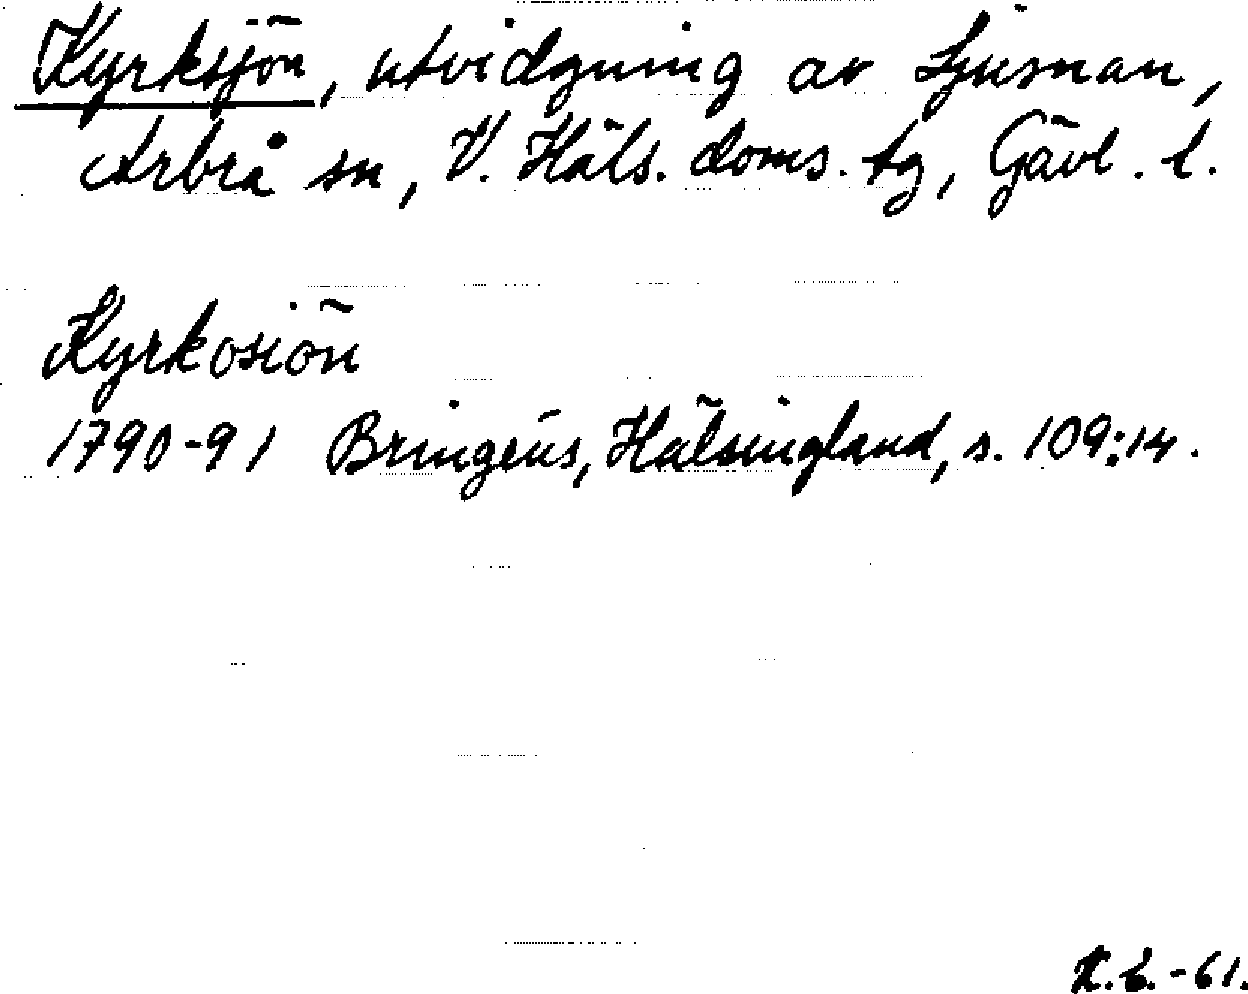 Kyrksjön, utvidgning av Ljusnan,
Arbrå sn, V. Häls. doms. tg, Gävl. l.
Kyrkosiön
1790-91 Bringéus, Hälsingland, s. 109:14.
K.L.-61.